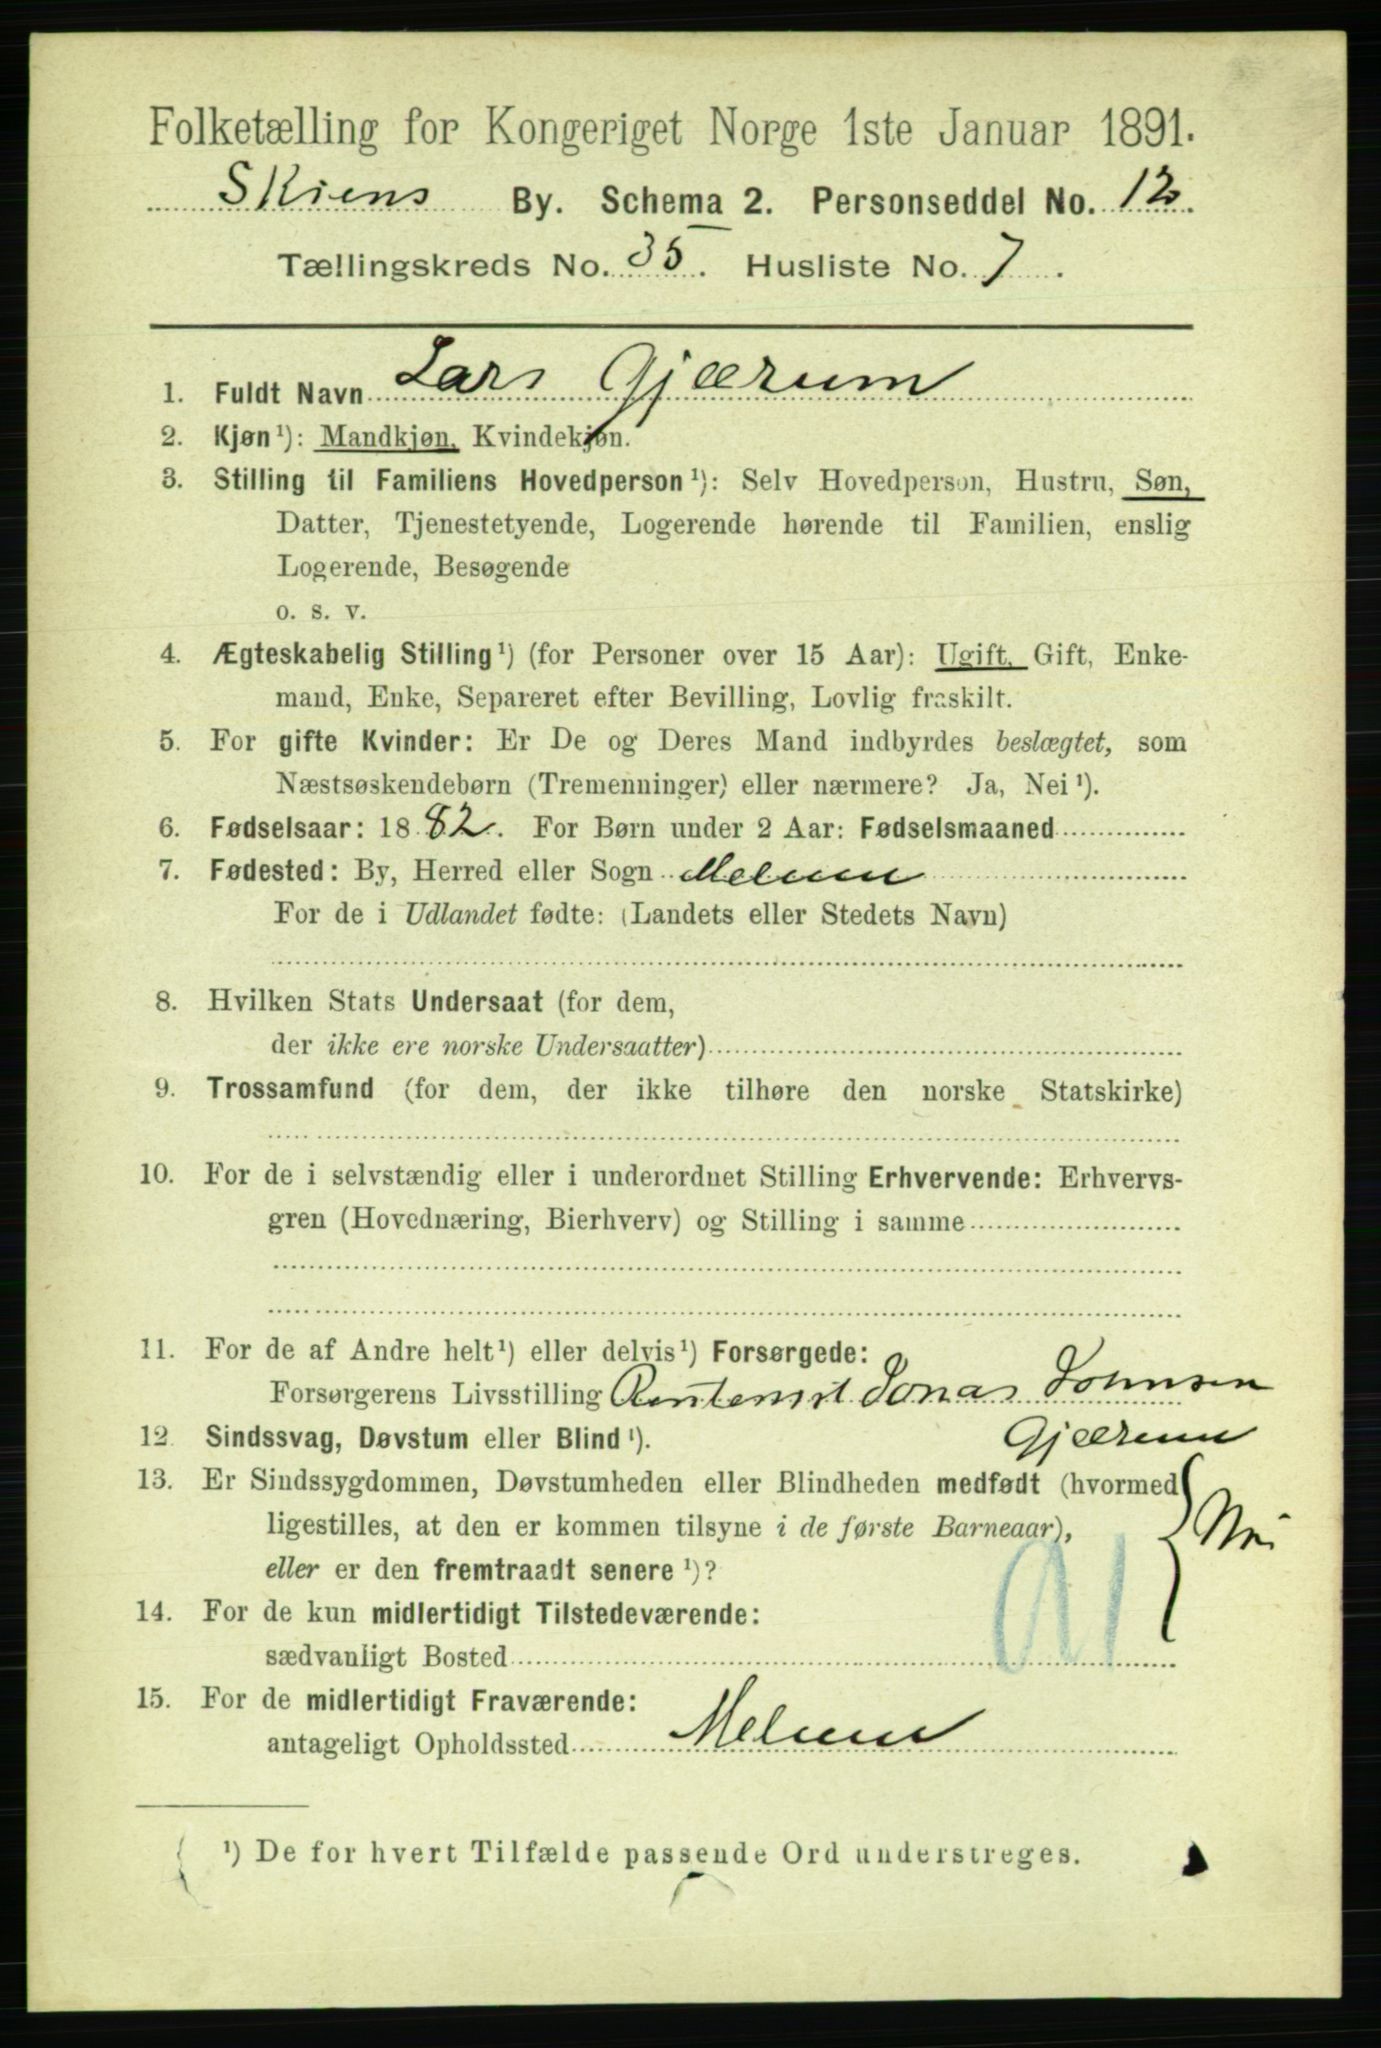 Folketælling for Kongeriget Norge 1ste Januar 1891.
Skiens By. Schema 2. Personseddel No. 12.
Tællingskreds No. 35. Husliste No. 7.
1. Fuldt Navn Lars Gjærum
2. Kjøn¹): Mandkjøn, Kvindekjøn.
3. Stilling til Familiens Hovedperson¹): Selv Hovedperson, Hustru, Søn,
Datter, Tjenestetyende, Logerende hørende til Familien, enslig
Logerende, Besøgende
o. s. v.
4. Ægteskabelig Stilling¹) (for Personer over 15 Aar): Ugift, Gift, Enke-
mand, Enke, Separeret efter Bevilling, Lovlig fraskilt.
5. For gifte Kvinder: Er De og Deres Mand indbyrdes beslægtet, som
Næstsøskendebørn (Tremenninger) eller nærmere? Ja, Nei¹).
6. Fødselsaar: 1882. For Børn under 2 Aar: Fødselsmaaned
7. Fødested: By, Herred eller Sogn Melum
For de i Udlandet fødte: (Landets eller Stedets Navn)
8. Hvilken Stats Undersaat (for dem,
der ikke ere norske Undersaatter)
9. Trossamfund (for dem, der ikke tilhøre den norske Statskirke)
10. For de i selvstændig eller i underordnet Stilling Erhvervende: Erhvervs-
gren (Hovednæring, Bierhverv) og Stilling i samme
11. For de af Andre helt¹) eller delvis¹) Forsørgede:
Forsørgerens Livsstilling Rentenist Jonas Johnsen
Gjærum
12. Sindssvag, Døvstum eller Blind¹).
13. Er Sindssygdommen, Døvstumheden eller Blindheden medfødt (hvormed
ligestilles, at den er kommen tilsyne i de første Barneaar), Nei
eller er den fremtraadt senere¹)?
14. For de kun midlertidigt Tilstedeværende:
sædvanligt Bosted
15. For de midlertidigt Fraværende:
antageligt Opholdssted Melum
¹) De for hvert Tilfælde passende Ord understreges.